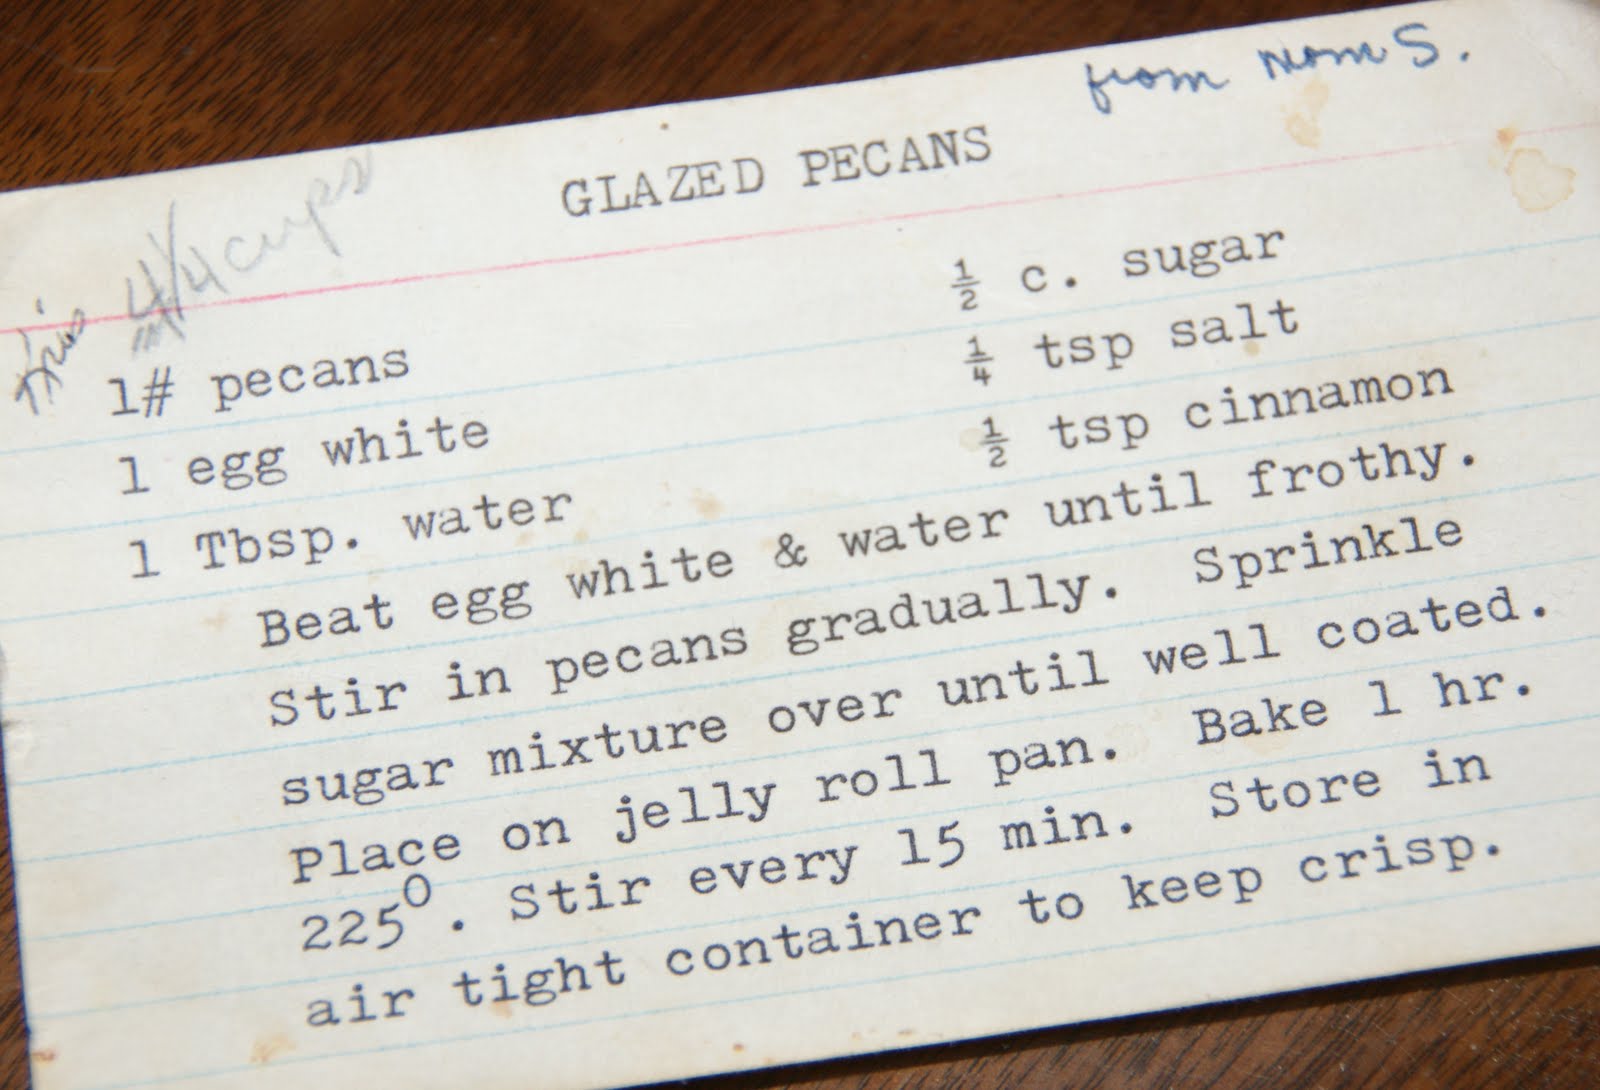 from Mom S.
GLAZED PECANS
4 1/4 cups
1# pecans ½ c. sugar
1 egg white ¼ tsp salt
1 Tbsp. water ½ tsp cinnamon
Beat egg white & water until frothy.
Stir in pecans gradually. Sprinkle
sugar mixture over until well coated.
Place on jelly roll pan. Bake 1 hr.
225°. Stir every 15 min. Store in
air tight container to keep crisp.